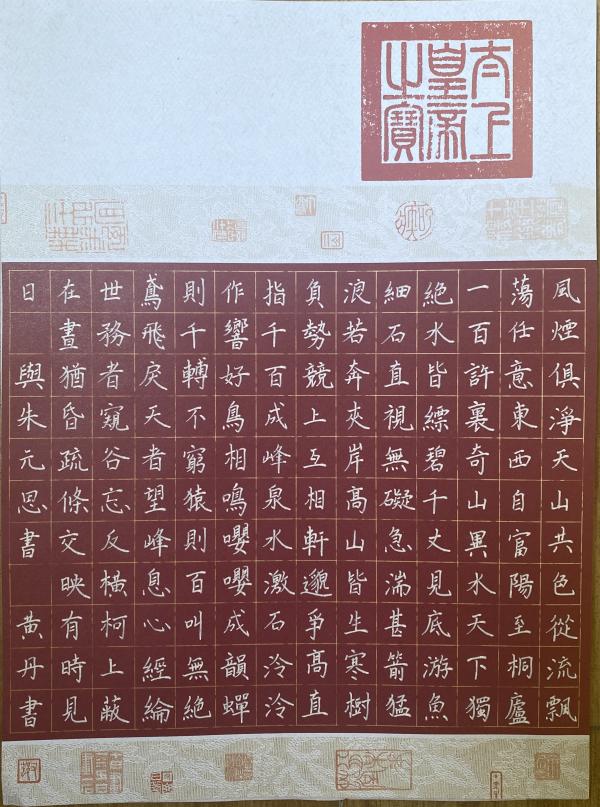 太上
皇帝
之寶
風煙俱淨天山共色從流飄
蕩任意東西自富陽至桐廬
一百許裏奇山異水天下獨
絕水皆縹碧千丈見底游魚
細石直視無礙急湍甚箭猛
浪若奔夾岸高山皆生寒樹
負勢競上互相軒邈爭高直
指千百成峰泉水激石泠泠
作響好鳥相鳴嚶嚶成韻蟬
則千轉不窮猿則百叫無絕
鳶飛戾天者望峰息心經綸
世務者窺谷忘反橫柯上蔽
在晝猶昏疏條交映有時見
日 與朱元思書 黃丹書